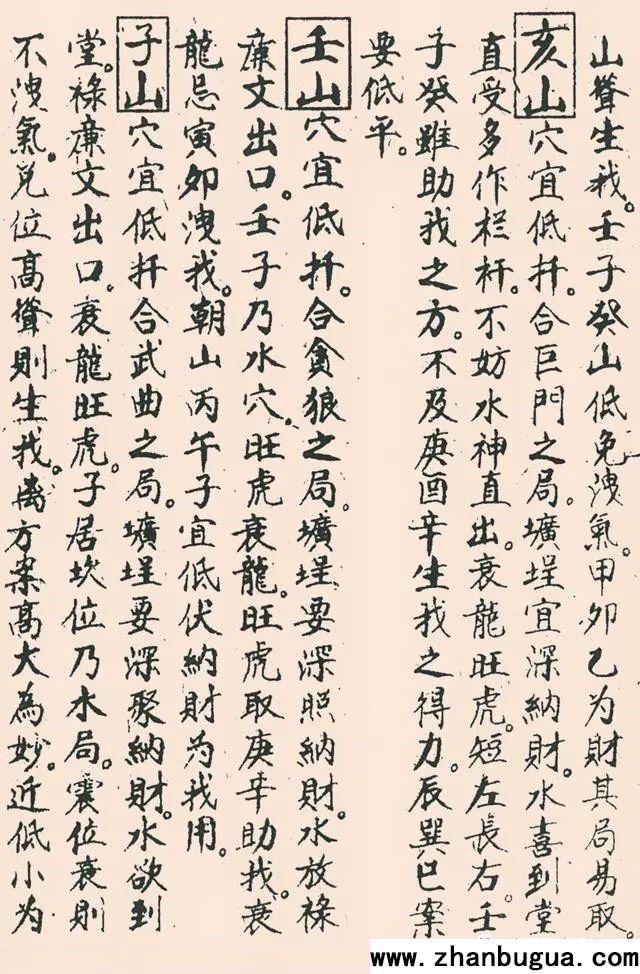 山聳生我。壬子癸山低免洩氣。甲卯乙为財其局易取。
亥山穴宜低扦。合巨門之局。壙埕宜深納財。水喜到堂
直受多作栏杆。不妨水神直出。衰龍旺虎。短左長右。壬
子癸雖助我之方。不及庚酉辛生我之得力。辰巽巳案
要低平。
壬山穴宜低扦。合貪狼之局。壙埕要深照納財。水放祿
廉文出口。壬子乃水穴。旺虎衰龍。旺虎取庚辛助我。衰
龍忌寅卯洩我。朝山丙午子宜低伏納財为我用。
子山穴宜低扦合武曲之局。壙埕要深聚納財。水欲到
堂。祿廉文出口。衰龍旺虎。子居坎位乃水局。震位衰則
不洩氣。兑位高聳則生我。离方案高大為妙。近低小为
www.zhanbugua.com